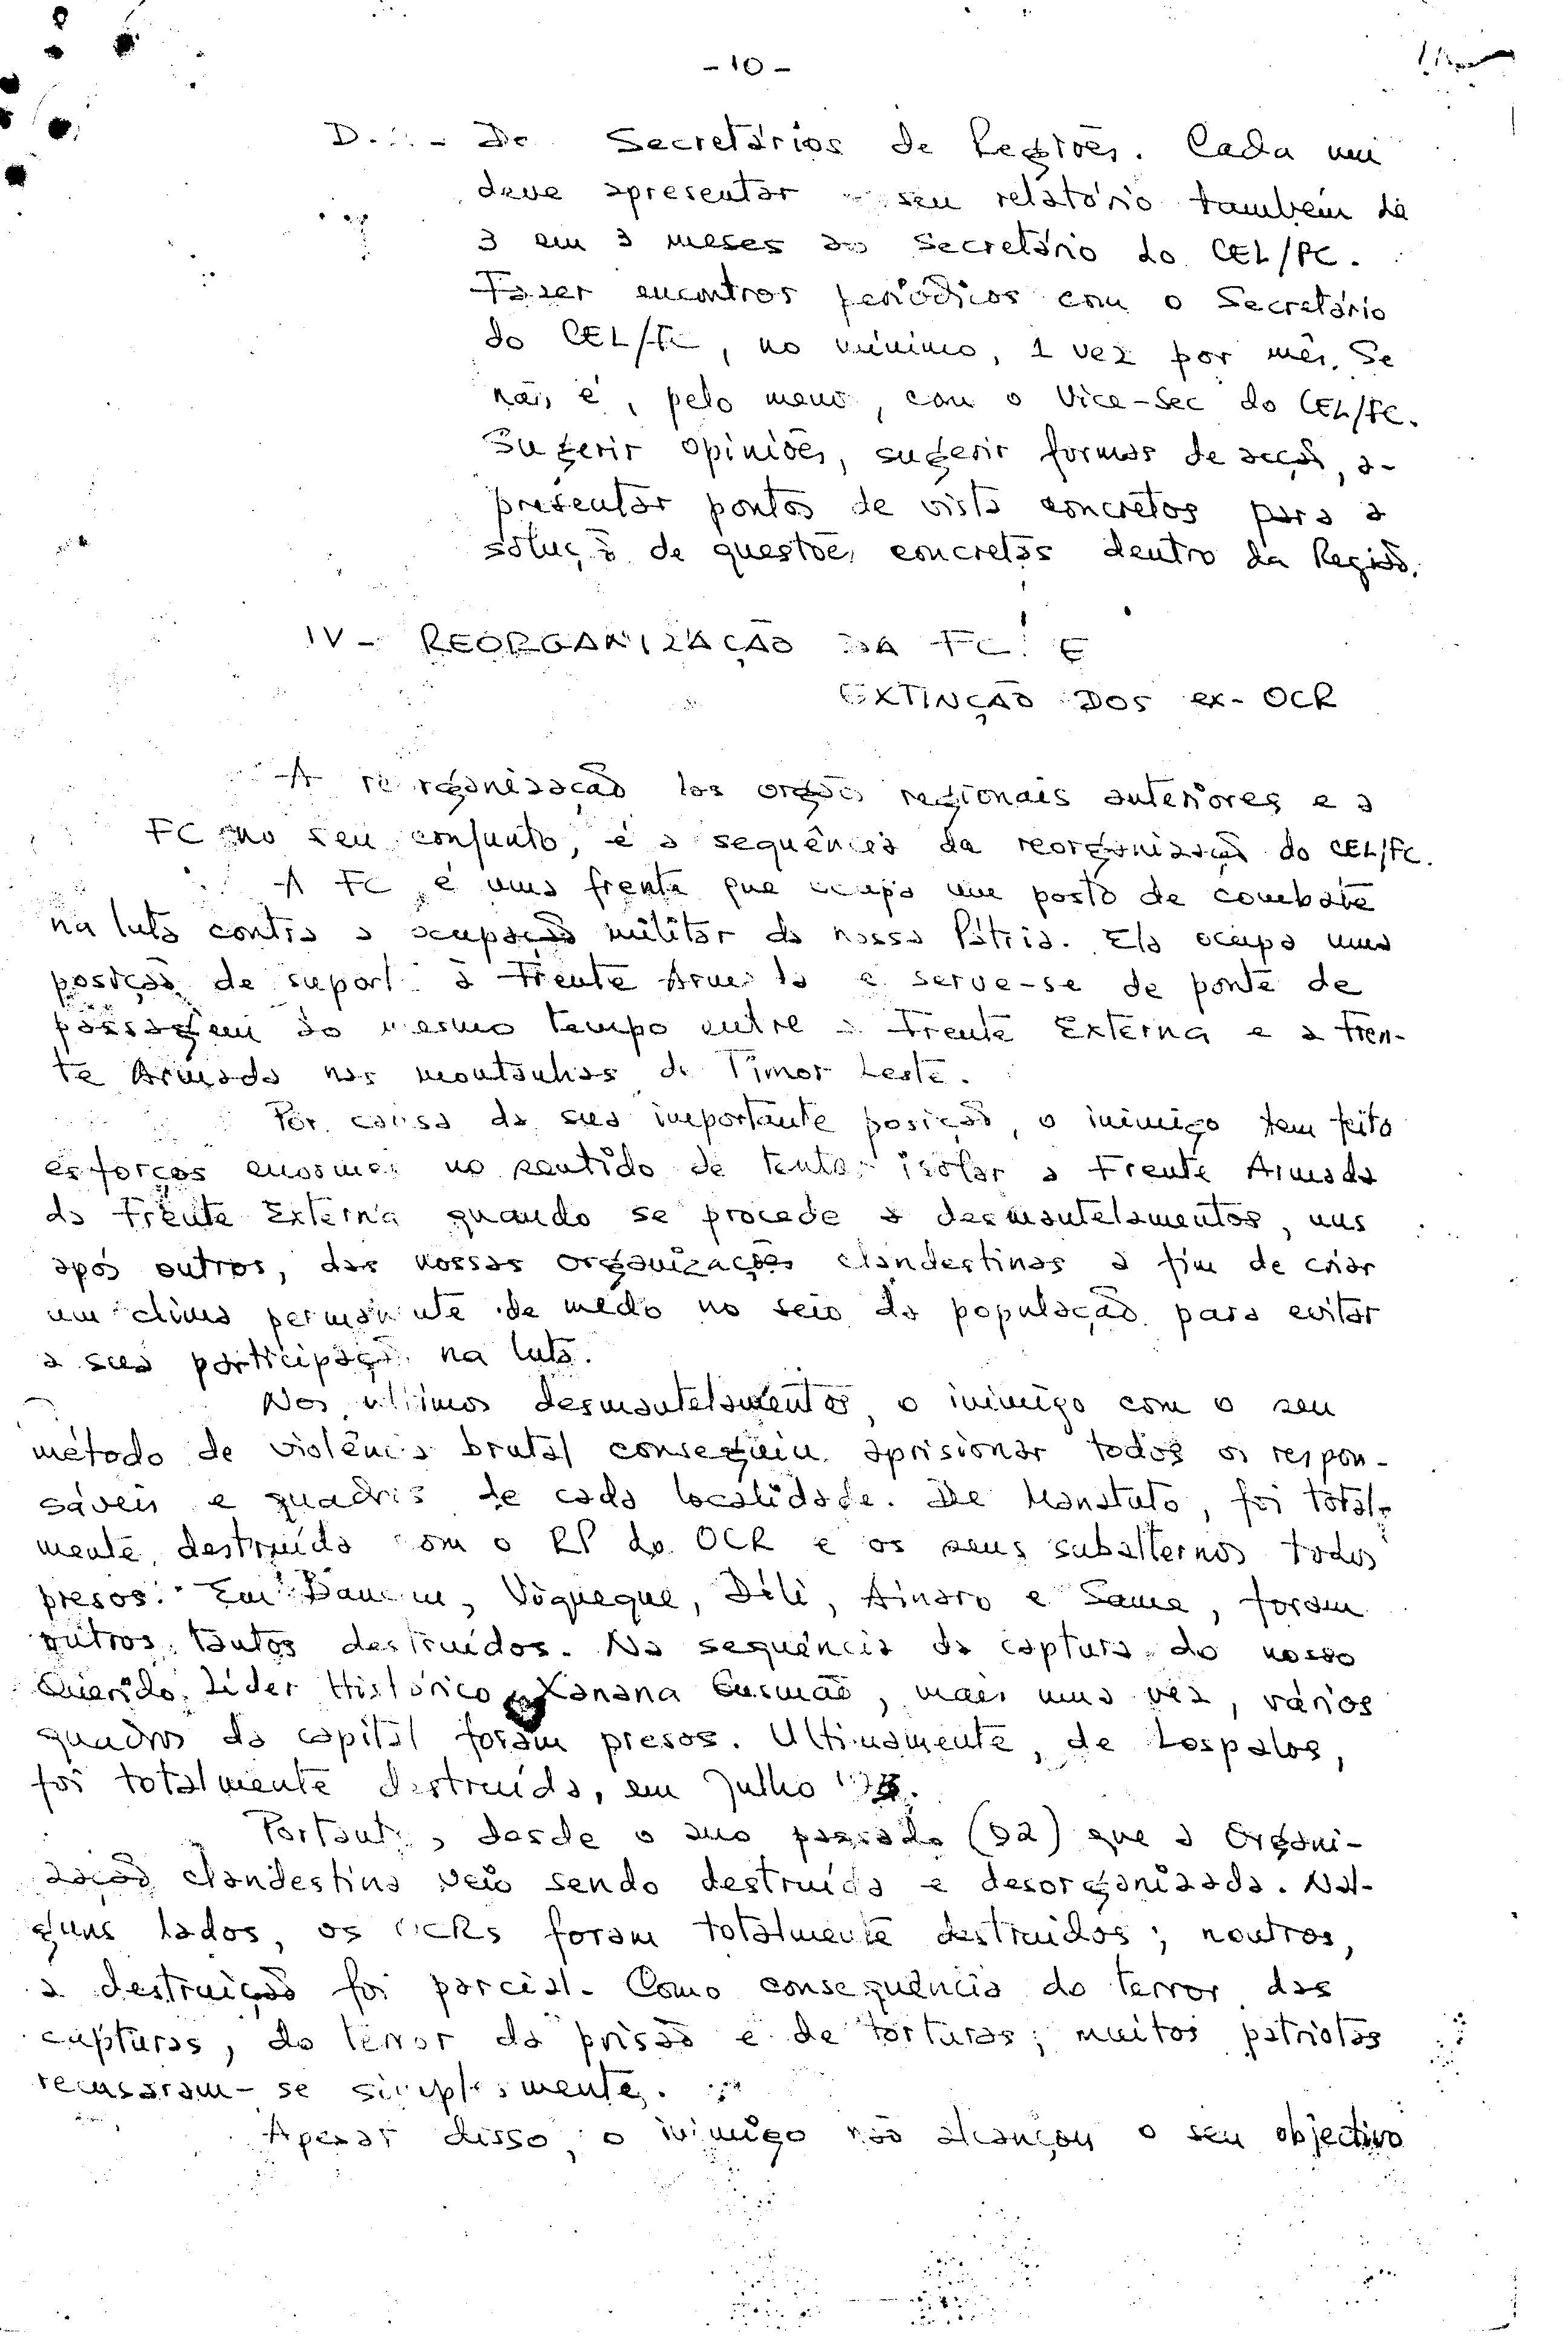 - 10 -
D. - De Secretários de Regiões. Cada um
deve apresentar seu relatório também de
3 em 3 meses ao Secretário do CEL/FC.
Fazer encontros periódicos com o Secretário
do CEL/FC, no mínimo, 1 vez por mês. Se
não é, pelo menos, com o Vice-Sec do CEL/FC.
Sugerir opiniões, sugerir formas de acção, a-
presentar pontos de vista concretos para a
solução de questões concretas dentro da Região.
IV - REORGANIZAÇÃO DA FC E
EXTINÇÃO DOS ex-OCR
A reorganização dos orgãos regionais anteriores e a
FC no seu conjunto, é a sequência da reorganização do CEL/FC.
A FC é uma frente que ocupa um posto de combate
na luta contra a ocupação militar da nossa Pátria. Ela ocupa uma
posição de suporte à Frente Armada e serve-se de ponte de
passagem ao mesmo tempo entre a Frente Externa e a Fren-
te Armada nas montanhas de Timor Leste.
Por causa da sua importante posição, o inimigo tem feito
esforços enormes no sentido de tentar isolar a Frente Armada
da Frente Externa quando se procede a desmantelamentos, uns
após outros, das nossas organizações clandestinas a fim de criar
um clima permanente de medo no seio da população para evitar
a sua participação na luta.
Nos ultimos desmantelamentos, o inimigo com o seu
método de violência brutal conseguiu aprisionar todos os respon-
sáveis e quadros de cada localidade. De Manatuto, foi total-
mente destruída com o RP do OCR e os seus subalternos todos
presos. Em Baucau, Viqueque, Díli, Ainaro e Same, foram
outros tantos destruídos. Na sequência da captura do nosso
Querido Líder Histórico Xanana Gusmão, mais uma vez, vários
quadros da capital foram presos. Ultimamente, de Lospalos,
foi totalmente destruída, em Julho
Portanto, desde o ano passado (92) que a Organi-
zação clandestina veio sendo destruída e desorganizada. Nal-
guns lados, os OCRs foram totalmente destruidos; noutros,
a destruição foi parcial. Como consequência do terror das
capturas, do terror da prisão e de torturas, muitos patriotas
recusaram-se simplesmente.
Apesar disso, o inimigo não alcançou o seu objectivo